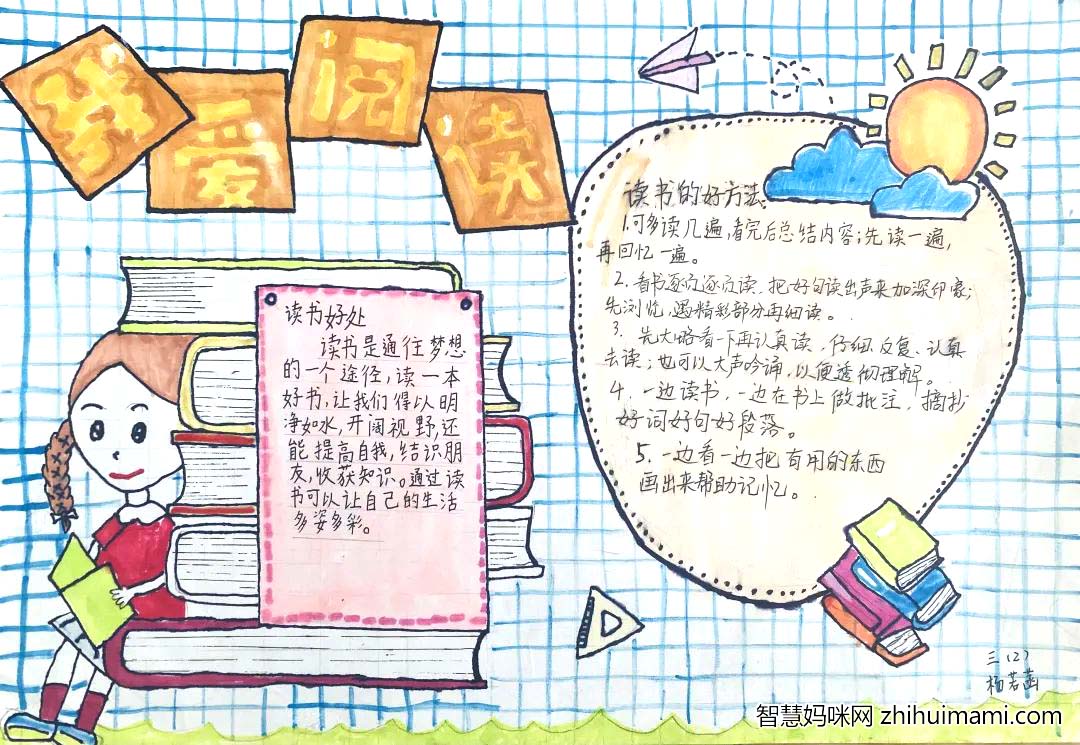 热爱阅读
读书好处
读书是通往梦想
的一个途径,读一本
好书,让我们得以明
净如水,开阔视野,还
能提高自我,结识朋
友,收获知识。通过读
书可以让自己的生活
多姿多彩。
读书的好方法:
1.可多读几遍,看完后总结内容;先读一遍,
再回忆一遍。
2.看书逐页逐页读,把好句读出声来加深印象;
先浏览,遇精彩部分再细读。
3.先大略看一下再认真读,仔细、反复、认真
去读;也可以大声吟诵,以便透彻理解。
4.一边读书,一边在书上做批注,摘抄
好词好句好段落。
5.一边看一边把有用的东西
画出来帮助记忆。
三(2)
杨若菡
智慧妈咪网 zhihuimami.com